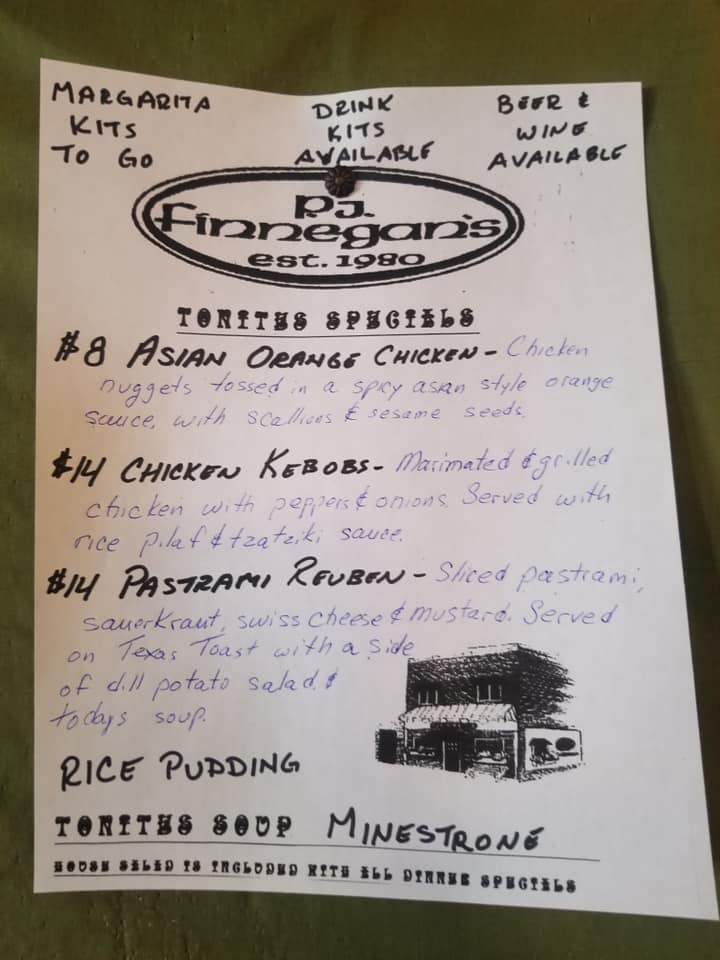 MARGARITA KITS TO GO
DRINK KITS AVAILABLE
BEER & WINE AVAILABLE
P.J.
Finnegan's
est. 1980
TONITES SPECIALS
$8 ASIAN ORANGE CHICKEN - Chicken
nuggets tossed in a spicy asian style orange
sauce, with scallions & sesame seeds.
$14 CHICKEN KEBOBS - Marinated & grilled
chicken with peppers & onions. Served with
rice pilaf & tzatziki sauce.
$14 PASTRAMI REUBEN - Sliced pastrami,
sauerkraut, swiss cheese & mustard. Served
on Texas Toast with a side
of dill potato salad &
todays soup.
RICE PUDDING
TONITES SOUP MINESTRONE
HOUSE SALAD IS INCLUDED WITH ALL DINNER SPECIALS